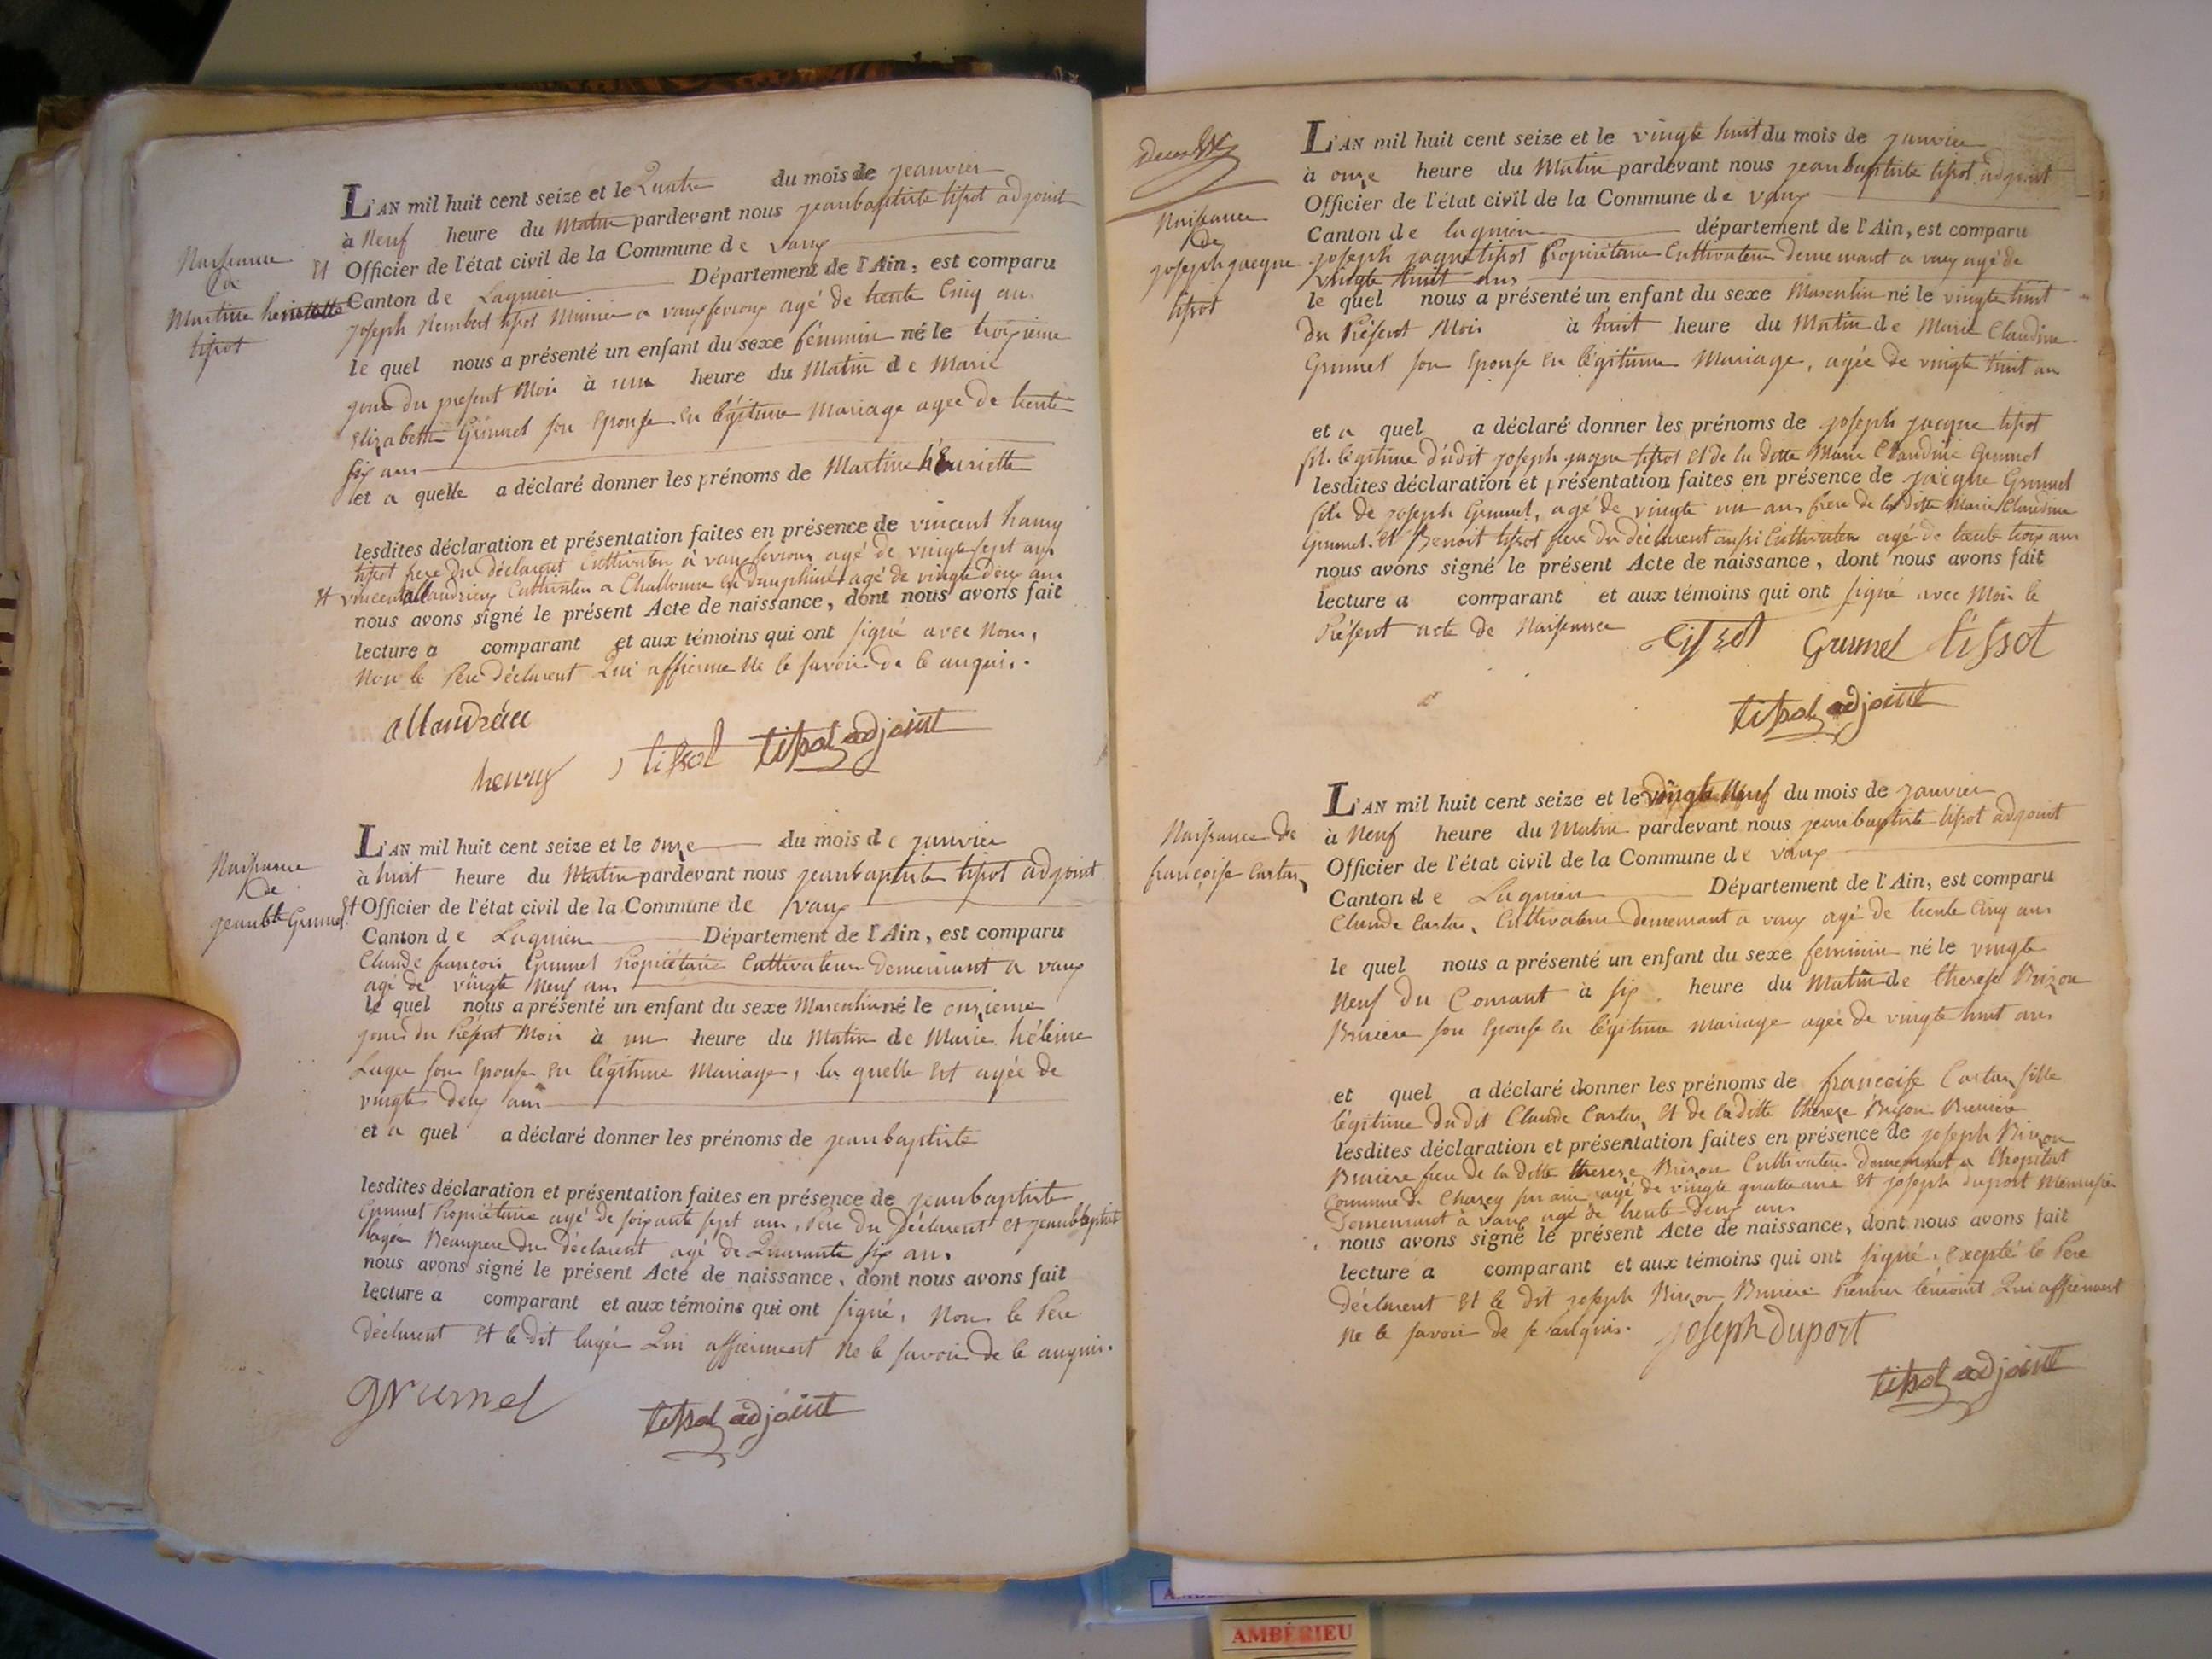 Naissance
de
Martine henriette
tissot
L'AN mil huit cent seize et le Quatre du mois de jeanvier
à Neuf heure du Matin pardevant nous jeanbaptiste tissot adjoint
Et Officier de l'état civil de la Commune de Vaux
Canton de Lagnieu Département de l'Ain, est comparu
joseph tissot Munier a vaux agé de trente Cinq ans
le quel nous a présenté un enfant du sexe féminin né le troisieme
jour du present Mois à une heure du Matin de Marie
Elizabette Grumel son Epouse en légitime Mariage agée de trente
six ans
et a quelle a déclaré donner les prénoms de Martine hEnriette
lesdites déclaration et présentation faites en présence de vincent
tissot frere du déclarent Cultivateur à vaux agé de vingte sept ans
Et vincent allandrieux Cultivateur a en Dauphiné agé de vingte Deux ans
nous avons signé le présent Acte de naissance, dont nous avons fait
lecture a comparant et aux témoins qui ont signé avec Nous,
Non le Pere déclarent Qui affierme Ne le savoir de ce anquis.
allandréu
henrus tissot tissot adjoint
Naissance
de
jeanbte Grumel
L'AN mil huit cent seize et le onze du mois de janvier
à huit heure du Matin pardevant nous jeanbaptiste tissot adjoint
Et Officier de l'état civil de la Commune de Vaux
Canton de Lagnieu Département de l'Ain, est comparu
Claude françois Grumel Propriétaire Cultivateur Demeurant a vaux
agé de vingte Neuf ans
le quel nous a présenté un enfant du sexe Masculin né le onzieme
jour du Présent Mois à un heure du Matin de Marie héleine
Lager son Epouse en légitime Mariage, la quelle Est agée de
vingte deux ans
et a quel a déclaré donner les prénoms de jeanbaptiste
lesdites déclaration et présentation faites en présence de jeanbaptiste
Grumel Propriétaire agé de soixante sept ans, Pere du Déclarent et jeanbaptiste
Beaupere du Déclarent agé de Quarante six ans
nous avons signé le présent Acte de naissance, dont nous avons fait
lecture a comparant et aux témoins qui ont signé, Non le Pere
déclarent Et le dit lagér Qui affierment Ne le savoir de ce anquis.
grumel
tissot adjoint
Naissance
de
joseph jacque
tissot
L'AN mil huit cent seize et le vingte huit du mois de janvier
à onze heure du Matin pardevant nous jeanbaptiste tissot adjoint
Officier de l'état civil de la Commune de Vaux
Canton de lagnieu département de l'Ain, est comparu
joseph jaque tissot Propriétaire Cultivateur demeurant a vaux agé de
vingte huit ans
le quel nous a présenté un enfant du sexe Masculin né le vingte huit
du Présent Mois à huit heure du Matin de Marie Claudine
Grumel son Epouse en légitime Mariage, agée de vingte huit ans
et a quel a déclaré donner les prénoms de joseph jacque tissot
fils légitime dudit joseph jaque tissot et de la ditte Marie Claudine Grumel
lesdites déclaration et présentation faites en présence de jacque Grumel
fils de joseph Grumel, agé de vingte un ans frere de la ditte Marie Claudine
Grumel. Et Benoit tissot frere du déclarent aussi Cultivateur agé de trente trois ans
nous avons signé le présent Acte de naissance, dont nous avons fait
lecture a comparant et aux témoins qui ont signé avec Moi le
Présent acte de Naissance tissot Grumel tissot
tissot adjoint
Naissance de
françoise Cartas
L'AN mil huit cent seize et le vingte Neuf du mois de janvier
à Neuf heure du Matin pardevant nous jeanbaptiste tissot adjoint
Officier de l'état civil de la Commune de Vaux
Canton de Lagnieu Département de l'Ain, est comparu
Claude Cartas, Cultivateur demeurant a vaux agé de trente Cinq ans
le quel nous a présenté un enfant du sexe feminin né le vingte
Neuf du Courant à six heure du Matin de therese Brizon
Bruniere son Epouse en légitime mariage agée de vingte huit ans
et quel a déclaré donner les prénoms de francoise Cartas fille
légitime du dit Claude Cartas, Et de la ditte therese Brizon Bruniere
lesdites déclaration et présentation faites en présence de joseph Brizon
Bruniere frere de la ditte therese Brizon Cultivateur demeurant a lhopital
Commune de agé de vingte quatre ans Et joseph duport Menusier
Demeurant à vaux agé de trente deux ans
nous avons signé le présent Acte de naissance, dont nous avons fait
lecture a comparant et aux témoins qui ont signé. Exepté le Pere
déclarent Et le dit joseph Brizon Bruniere Premier témoint Qui affierment
Ne le savoir de ce anquis. joseph duport
tissot adjoint
AMBÉRIEU